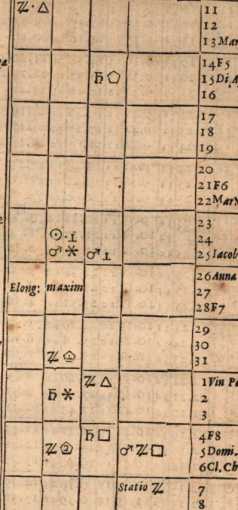 ♃·△ 11
12
13 Mar
14 F5
♄ ⬠ 15 Di. A
16
17
18
19
20
21 F6
22 Mar
23
☉· 24
♂ ⚹ ♂ 25 Iacob
26 Anna
Elong: maxim 27
28 F7
29
30
♃ 31
♃ △ 1 Vin P
♄ ⚹ 2
3
♄ □ 4 F8
♃ ♂ ♃ □ 5 Domi.
6 Cl. Ch
Statio ♃ 7
8